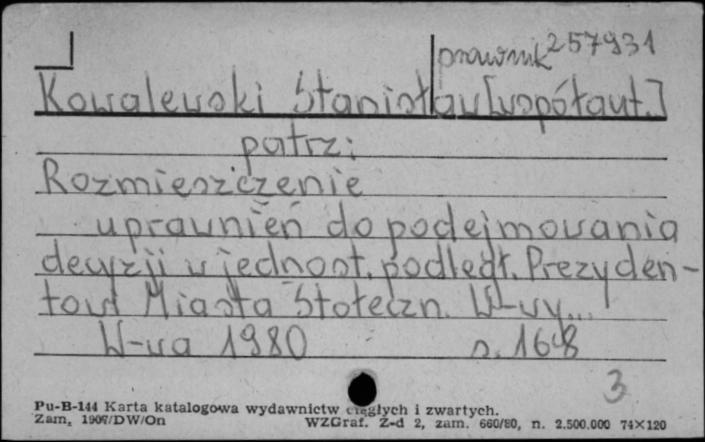 prawnik 257931
Kowalewski Stanisław [współaut.]
patrz:
Rozmieszczenie
uprawnień do podejmowania
decyzji w jednost. podległ. Prezyden-
towi Miasta Stołeczn. W-wy...
W-wa 1980 s. 168
3
Pu-B-144 Karta katalogowa wydawnictw ciągłych i zwartych.
Zam. 1907/DW/On WZGraf. Z-d 2, zam. 660/80, n. 2.500.000 74×120